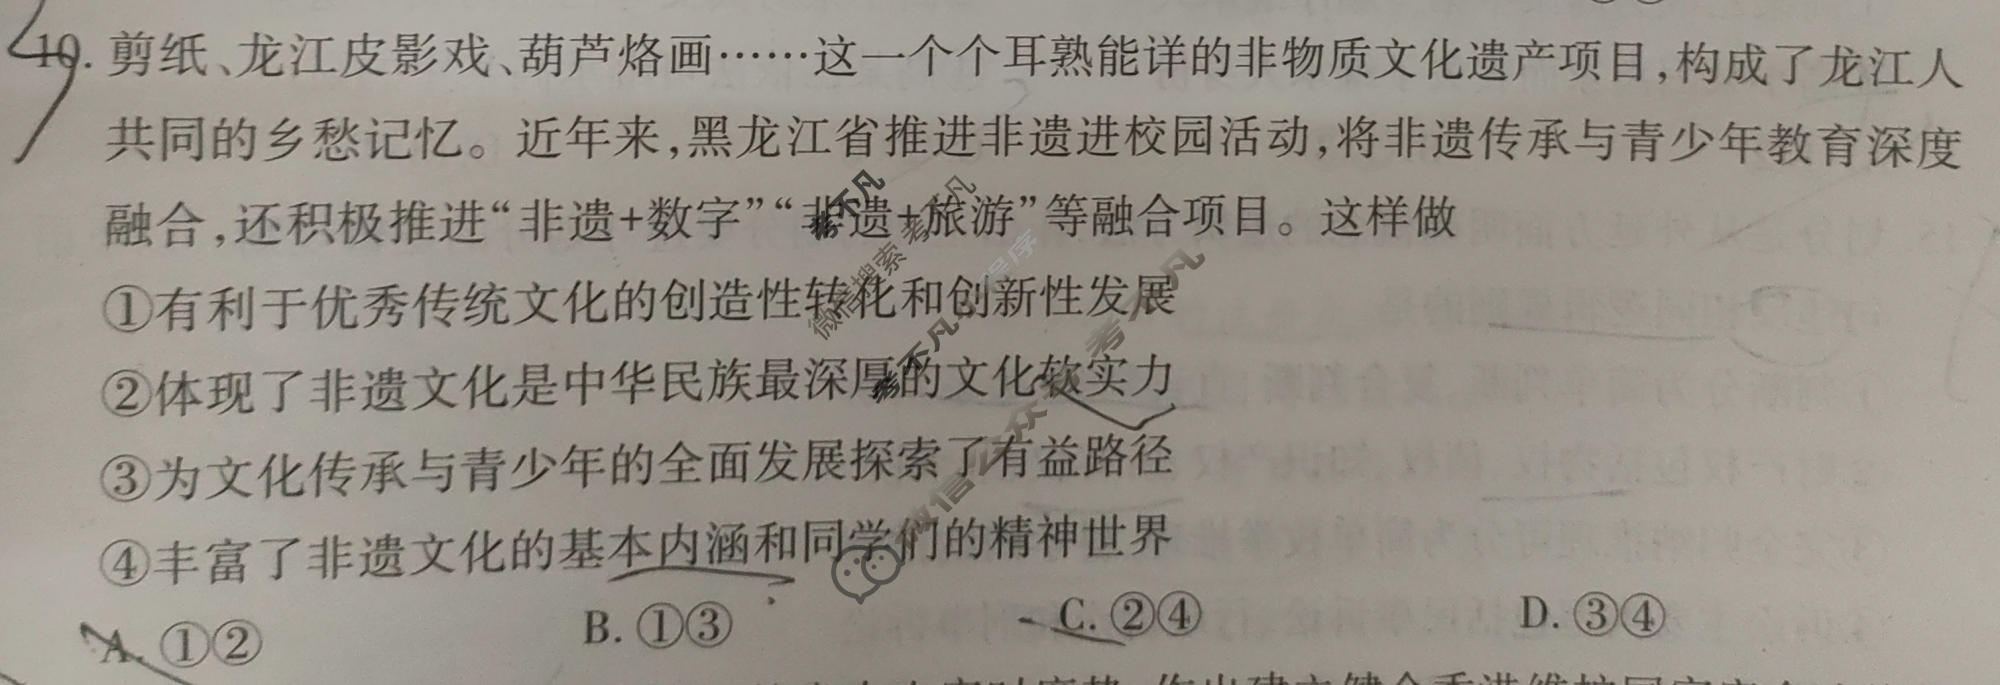 10. 剪纸、龙江皮影戏、葫芦烙画……这一个个耳熟能详的非物质文化遗产项目,构成了龙江人
共同的乡愁记忆。近年来,黑龙江省推进非遗进校园活动,将非遗传承与青少年教育深度
融合,还积极推进“非遗+数字”“非遗+旅游”等融合项目。这样做
①有利于优秀传统文化的创造性转化和创新性发展
②体现了非遗文化是中华民族最深厚的文化软实力
③为文化传承与青少年的全面发展探索了有益路径
④丰富了非遗文化的基本内涵和同学们的精神世界
A. ①② B. ①③ C. ②④ D. ③④